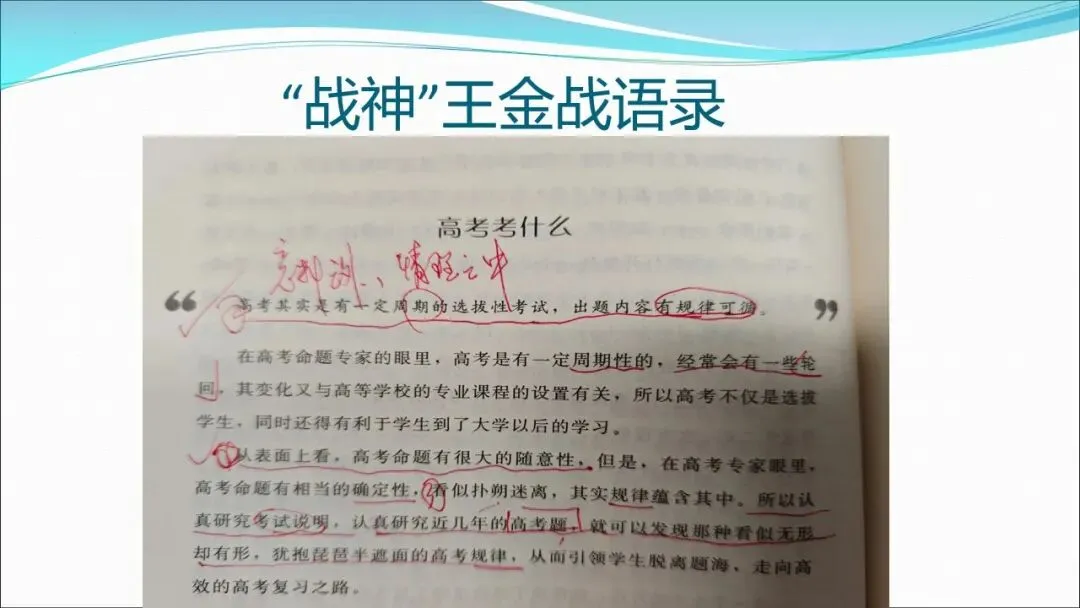 “战神”王金战语录
高考考什么
情理之中
“高考其实是有一定周期的选拔性考试，出题内容有规律可循。”
在高考命题专家的眼里，高考是有一定周期性的，经常会有一些轮
回，其变化又与高等学校的专业课程的设置有关，所以高考不仅是选拔
学生，同时还得有利于学生到了大学以后的学习。
①从表面上看，高考命题有很大的随意性，但是，在高考专家眼里，
高考命题有相当的确定性，②看似扑朔迷离，其实规律蕴含其中。所以认
真研究考试说明，认真研究近几年的高考题，就可以发现那种看似无形
却有形，犹抱琵琶半遮面的高考规律，从而引领学生脱离题海，走向高
效的高考复习之路。